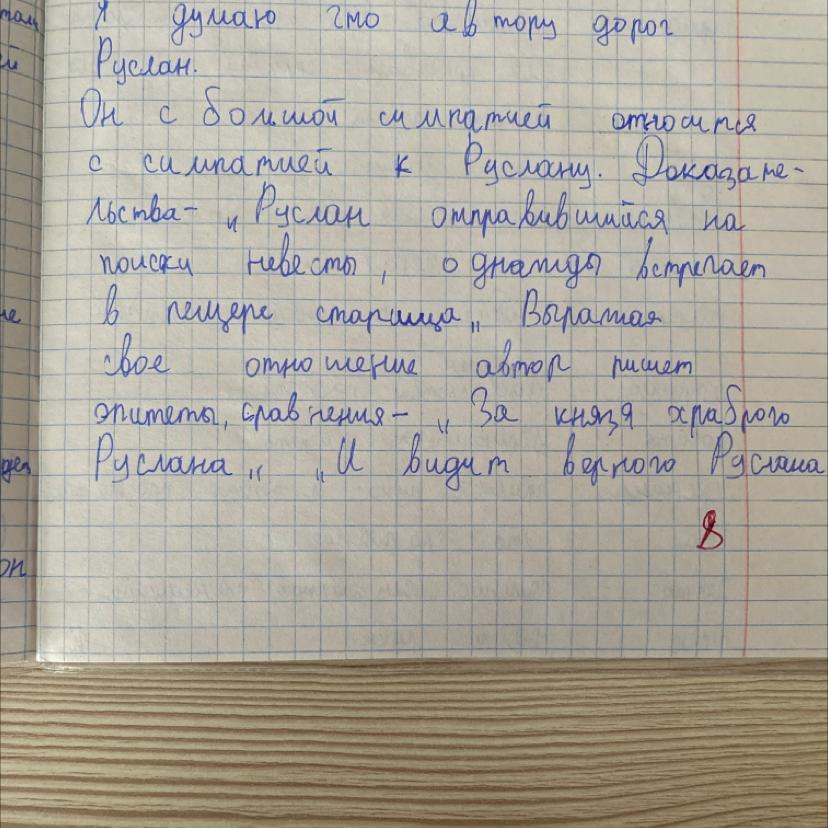 Я думаю что автору дорог
Руслан.
Он с большой симпатией относится
с симпатией к Руслану. Доказате-
льства- „Руслан отправившийся на
поиски невесты, однажды встречает
в пещере старица„ Выражая
свое отношение автор пишет
эпитеты, сравнения- „За князя храброго
Руслана„ „И видит верного Руслана
8
он